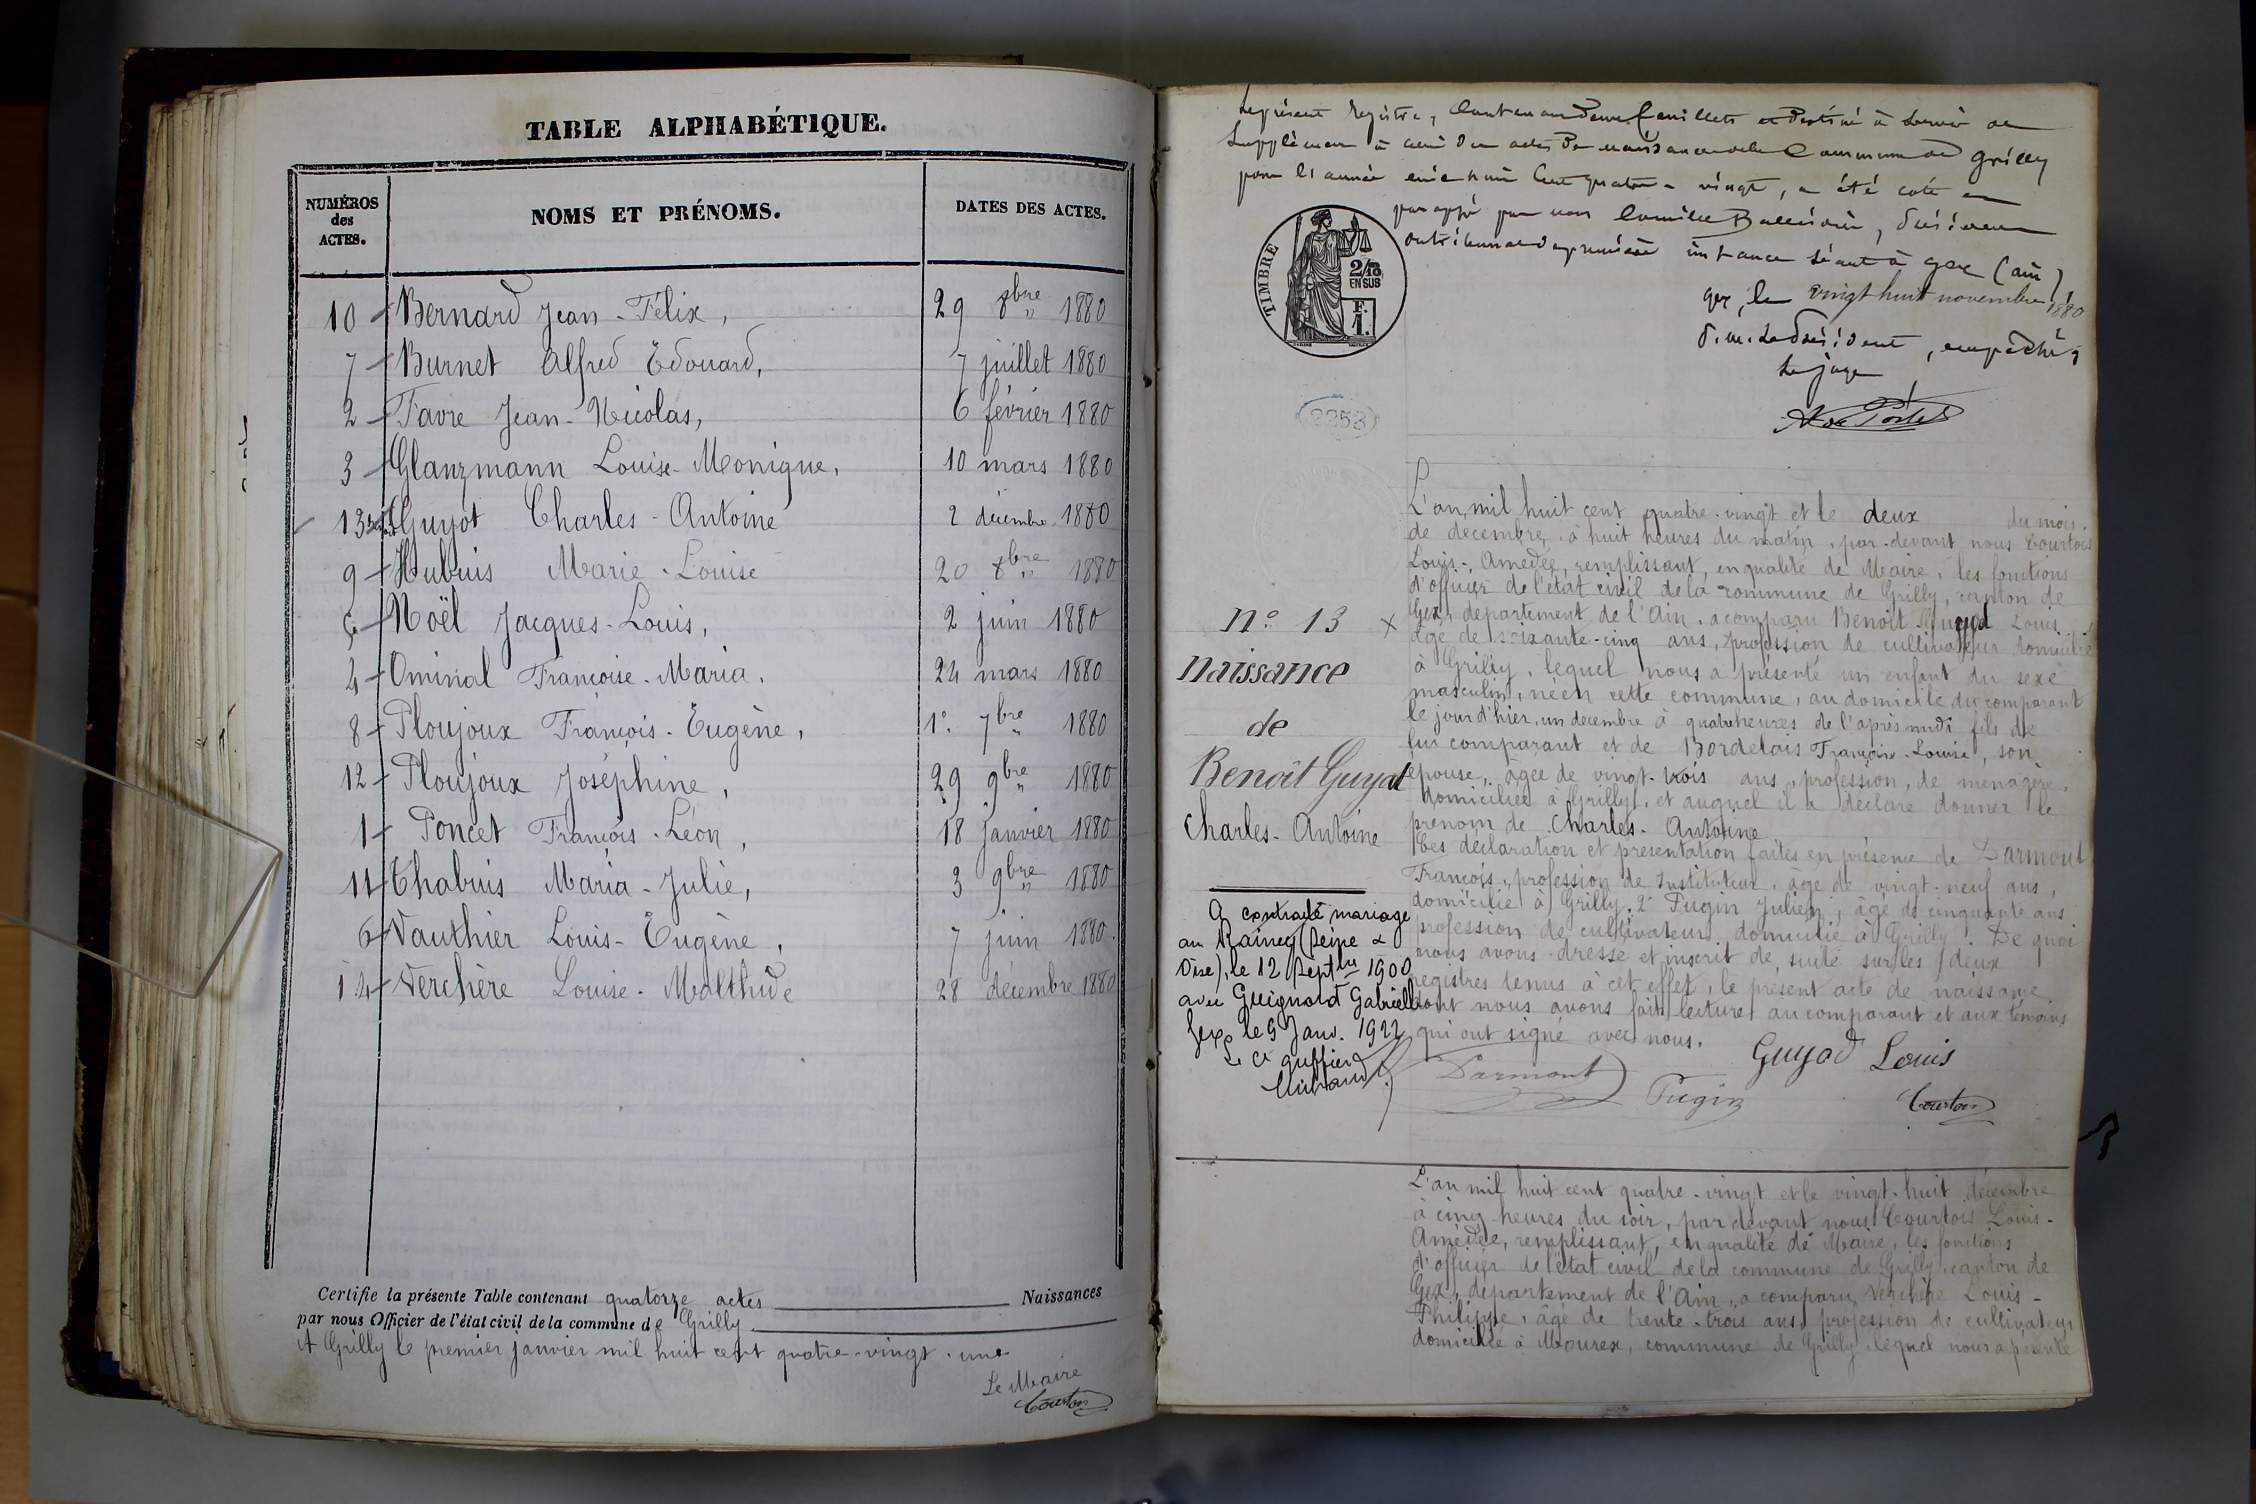 TABLE ALPHABÉTIQUE.
NUMÉROS
des
ACTES.
NOMS ET PRÉNOMS.
DATES DES ACTES.
10 Bernard Jean-Félix, 29 8bre 1880
7 Burnet Alfred Edouard, 7 juillet 1880
2 Favre Jean-Nicolas, 6 février 1880
3 Glanzmann Louise-Monique, 10 mars 1880
13 Guyot Charles-Antoine 2 décembre 1880
9 Hubuis Marie-Louise 20 8bre 1880
Noël Jacques-Louis, 2 juin 1880
4 Ominal Françoise-Maria. 24 mars 1880
8 Ploujoux François-Eugène, 1er 7bre 1880
12 Ploujoux Joséphine, 29 9bre 1880
1 Poncet François-Léon, 18 janvier 1880
11 Thabuis Maria-Julie, 3 9bre 1880
6 Vauthier Louis-Eugène, 7 juin 1880.
14 Verchère Louise-Malthide 28 décembre 1880
Certifie la présente Table contenant quatorze actes Naissances
par nous Officier de l'état civil de la commune de Grilly
A Grilly le premier janvier mil huit cent quatre-vingt-une
Le Maire
Courtois
Le présent registre, contenant deux feuillets et destiné à servir de
supplément à celui des actes de naissance de la commune de Grilly
pour l'année mil huit cent quatre-vingt, a été coté et
paraphé par nous Camille, Président
du tribunal de première instance séant à Gex (Ain)
Gex, le vingt huit novembre 1880
P. M. le Président, empêché,
Le juge
TIMBRE
2/10
EN SUS
F.
1.
2253
L'an mil huit cent quatre-vingt et le deux du mois
de décembre, à huit heures du matin, par-devant nous Courtois
Louis-Amédée, remplissant, en qualité de Maire, les fonctions
d'officier de l'état civil de la commune de Grilly, canton de
Gex, département de l'Ain, a comparu Benoît Guyod Louis
âgé de soixante-cinq ans, profession de cultivateur domicilié
à Grilly, lequel nous a présenté un enfant du sexe
masculin, né en cette commune, au domicile du comparant
le jour d'hier, un décembre à quatre heures de l'après midi fils de
lui comparant et de Bordelais François-Louise, son
épouse, âgée de vingt-trois ans, profession, de ménagère,
domiciliée à Grilly, et auquel il a déclaré donner le
prénom de Charles-Antoine
Ces déclaration et présentation faites en présence de Darmont
François, profession de Instituteur, âgé de vingt-neuf ans,
domicilié à Grilly, 2° Pugin Julien, âgé de cinquante ans
profession de cultivateur domicilié à Grilly. De quoi
nous avons dressé et inscrit de suite sur les deux
registres tenus à cet effet, le présent acte de naissance
dont nous avons fait lecture au comparant et aux témoins
qui ont signé avec nous.
Guyod Louis
Darmont
Pugin
Courtois
N° 13
Naissance
de
Benoît Guyot
Charles-Antoine
A contracté mariage
au Raincy (Seine &
Oise), le 12 Septbre 1900
avec Guignard Gabrielle
Gex le 9 Janv. 1922
Le Cs greffier
L'an mil huit cent quatre-vingt et le vingt-huit décembre
à cinq heures du soir, par devant nous Courtois Louis-
Amédée, remplissant, en qualité de Maire, les fonctions
d'officier de l'état civil de la commune de Grilly, canton de
Gex, département de l'Ain, a comparu Verchère Louis-
Philippe, âgé de trente-trois ans, profession de cultivateur
domicilié à Mourex, commune de Grilly lequel nous a présenté